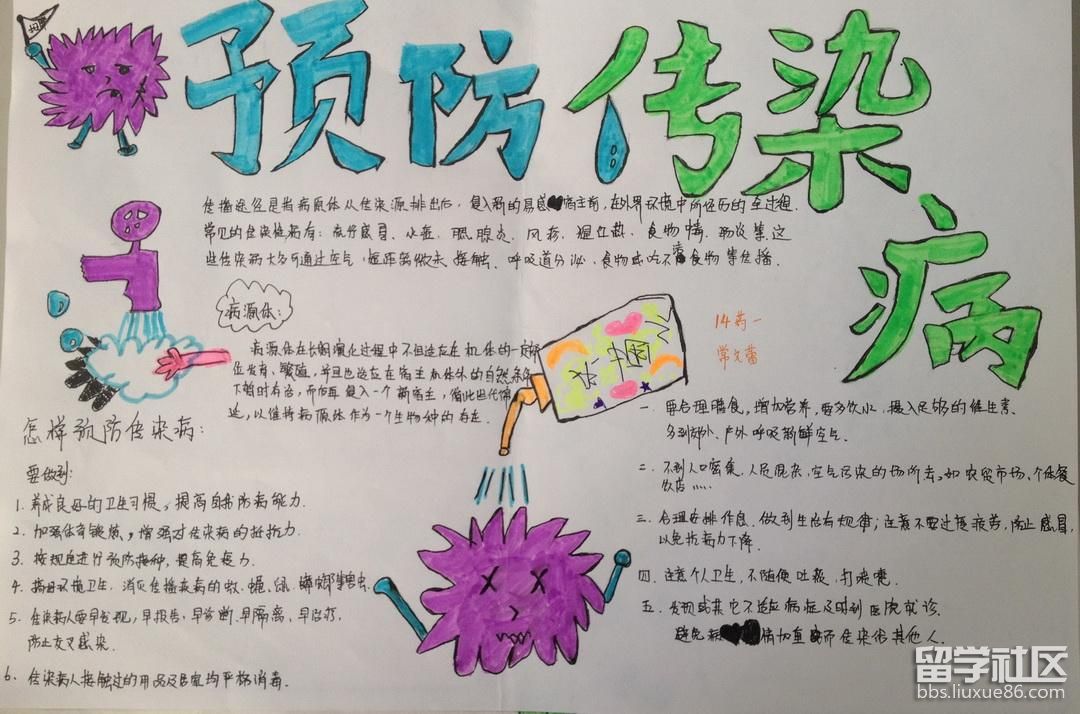 预防传染病
传播途径是指病原体从传染源排出后,侵入新的易感宿主前,在外界环境中所经历的全过程.
常见的传染性病有:流行感冒、水痘、腮腺炎、风疹、猩红热、食物中毒、肠炎等.这
些传染病大多可通过空气,短距离飞沫、接触、呼吸道分泌,食物或吃不清食物等传播.
病源体:
病源体在长期演化过程中不但适应在机体的一定部
位发育、繁殖,并且也适应在宿主机体外的自然条件
下暂时存活,而后再侵入一个新宿主,借此世代绵
延,以维持病原体作为一个生物种的存在.
14药一
中国
怎样预防传染病:
要做到:
1.养成良好的卫生习惯,提高自我防病能力.
2.加强体育锻炼,增强对传染病的抵抗力.
3.按规定进行预防接种,提高免疫力.
4.搞好环境卫生,消灭传播疾病的蚊、蝇、鼠、蟑螂等害虫.
5.传染病人要早发现,早报告,早诊断,早隔离,早治疗,
防止交叉感染.
6.传染病人接触过的用品及居室均严格消毒.
一.要合理膳食,增加营养,要多饮水,摄入足够的维生素.
多到郊外、户外呼吸新鲜空气.
二.不到人口密集,人员混杂,空气污染的场所去.如农贸市场、个体餐
饮店……
三.合理安排作息,做到生活有规律;注意不要过度疲劳,防止感冒,
以免抗病力下降.
四.注意个人卫生,不随便吐痰,打喷嚏.
五.发现或其它不适应病症及时到医院就诊
避免病情加重而传染给其他人.
留学社区
bbs.liuxue86.com